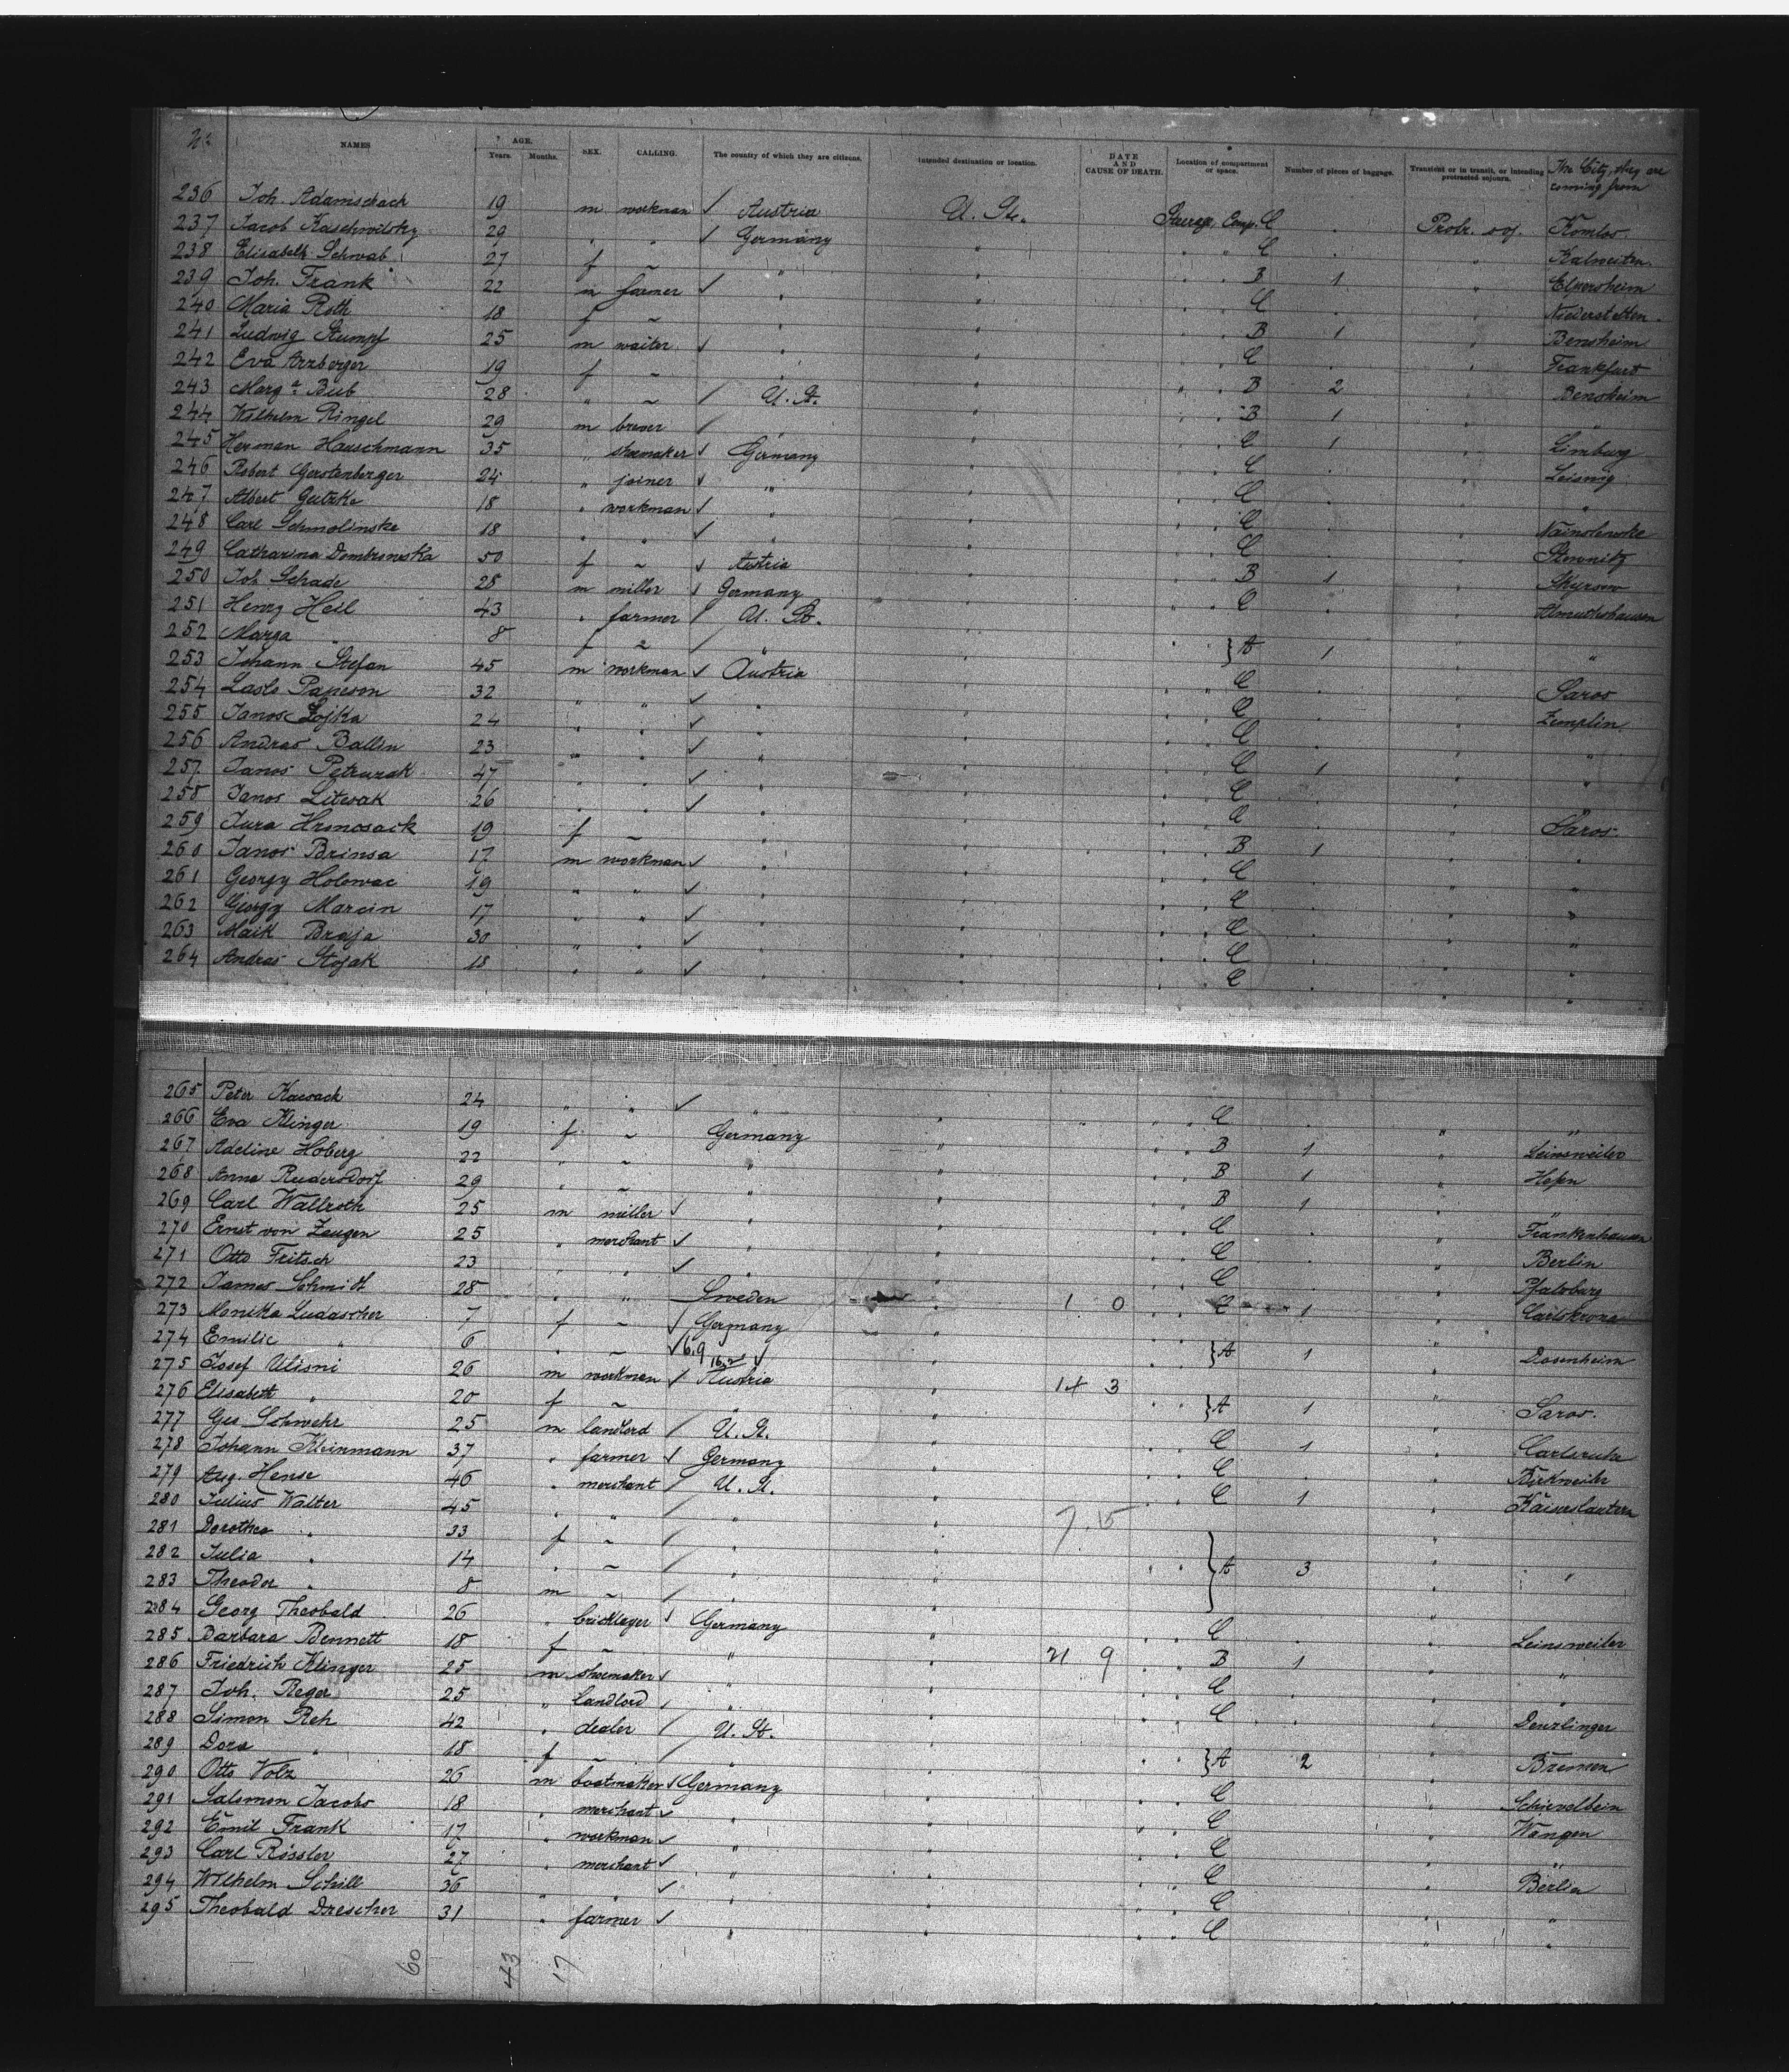 No. NAMES AGE. Years. Months. SEX. CALLING. The country of which they are citizens. Intended destination or location. DATE AND CAUSE OF DEATH. Location of compartment or space. Number of pieces of baggage. Transient or in transit, or intending protracted sojourn. The City, they are coming from
236 Joh. Adamschack 19 m workman ✓ Austria U. St. Steerage, Comp. C Protr. soj. Komlos
237 Jacob Kaschwilsky 29 " " ✓ Germany " C " Kalweiten
238 Elisabeth Schwab 27 f ~ " " B 1 " Elpersheim
239 Joh. Frank 22 m farmer ✓ " " C " Niederstetten
240 Maria Roth 18 f ~ " " B 1 " Bensheim
241 Ludwig Stumpf 25 m waiter ✓ " " C " Frankfurt
242 Eva Arzberger 19 f ~ " " B 2 " Bensheim
243 Marga Bub 28 " ~ / U. St. " B 1 " "
244 Wilhelm Ringel 29 m brewer / " " C 1 " Limburg
245 Herman Hauschmann 35 " shoemaker ✓ Germany " C " Leisnig
246 Robert Gerstenberger 24 " joiner ✓ " " C " "
247 Albert Gutzke 18 " workman ✓ " " C "
248 Carl Schmolinske 18 " " ✓ " " C "
249 Catharina Dombrowska 50 f ~ ✓ Austria " B 1 "
250 Joh. Schade 28 m miller ✓ Germany " C " Almuthshausen
251 Henry Heil 43 " farmer / U. St. "
252 Marga " 8 f ~ / " " } A 1 " "
253 Johann Stefan 45 m workman ✓ Austria " C " Saros
254 Laslo Papeson 32 " " ✓ " " C " Zemplin
255 Janos Zojka 24 " " ✓ " " C " "
256 Andras Ballin 23 " " ✓ " " C 1 " "
257 Janos Petrusak 47 " " ✓ " " C " "
258 Janos Litwak 26 " " ✓ " " C " Saros
259 Jura Hrnosack 19 f ~ " " B 1 " "
260 Janos Brinsa 17 m workman ✓ " " C " "
261 Georgy Holowac 19 " " ✓ " " C " "
262 Georgy Marcin 17 " " ✓ " " C " "
263 Maik Braja 30 " " ✓ " " C " "
264 Andras Stojak 18 " " ✓ " " C " "
265 Peter Kawack 24 " " ✓ " " C " "
266 Eva Klinger 19 f ~ Germany " B 1 " Leinsweiler
267 Adeline Hoberg 22 " ~ " " B 1 "
268 Anna Rudersdorf 29 " ~ " " B 1 " "
269 Carl Wallroth 25 m miller ✓ " " C " Frankenhausen
270 Ernst von Zeugen 25 " merchant ✓ " " C " Berlin
271 Otto Fritsch 23 " " ✓ " " C " Pfalzburg
272 James Schmidt 28 " " Sweden " 1 0 C 1 " Carlskrona
273 Monika Ludascher 7 f ~ ✓ Germany "
274 Emilie " 6 " ~ ✓ 6.9 " } A 1 " Dossenheim
275 Josef Ulisni 26 m workman ✓ Austria " 14 3
276 Elisabeth " 20 f ~ " " } A 1 " Saros
277 Geo Schwehr 25 m landlord / U. St. " C 1 " Carlsruhe
278 Johann Kleinmann 37 " farmer ✓ Germany " C " Birkweiler
279 Aug. Hense 46 " merchant / U. St. " C 1 " Kaiserslautern
280 Julius Walter 45 " " / " " 7.15
281 Dorothea " 33 f ~ / " "
282 Julia " 14 " ~ / " " } A 3 " "
283 Theodor " 8 m ~ / " "
284 Georg Theobald 26 " bricklayer ✓ Germany " C " Leinsweiler
285 Barbara Bennett 18 f ~ " " 21 9 B 1 " "
286 Friedrich Klinger 25 m shoemaker ✓ " " C " "
287 Joh. Reger 25 " landlord / " " C " Denzlinger
288 Simon Reh 42 " dealer / U. St. "
289 Dora " 18 f ~ / " " } A 2 " Bremen
290 Otto Volz 26 m bootmaker ✓ Germany " C " Schievelbein
291 Salomon Jacobs 18 " merchant ✓ " " C " Wangen
292 Emil Frank 17 " workman ✓ " " C " "
293 Carl Rössler 27 " merchant ✓ " " C " Berlin
294 Wilhelm Schill 36 " " ✓ " " C " "
295 Theobald Drescher 31 " farmer ✓ " " C " "
60 43 17